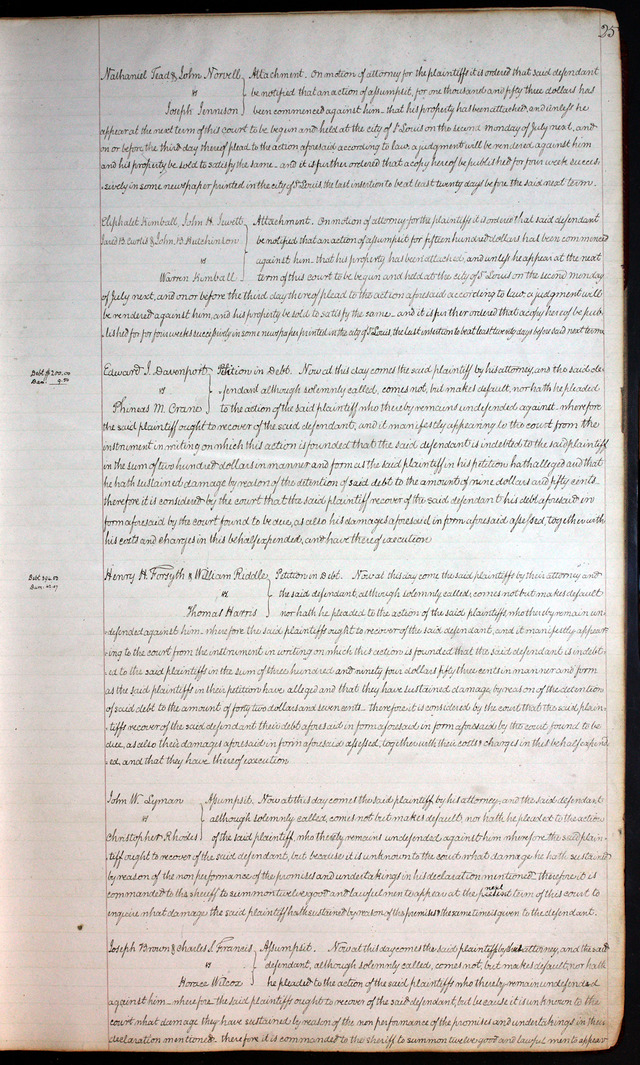 25
Nathaniel Tead & John Norvell } Attachment. On motion of attorney for the plaintiffs it is ordered that said defendant
vs be notified that an action of assumpsit, for one thousand and fifty three dollars has
Joseph Jennison been commenced against him – that his property has been attached, and unless he
appear at the next term of this court to be begun and held at the city of St Louis on the second monday of July next, and
on or before the third day thereof plead to the action aforesaid according to law a judgment will be rendered against him
and his property be sold to satisfy the same – and it is further ordered that a copy hereof be published for four weeks succes-
sively in some newspaper printed in the city of St Louis, the last insertion to be at least twenty days before the said next term.
Eliphalet Kimball, John H. Jewett } Attachment. On motion of attorney for the plaintiffs it is ordered that said defendant
Jared B Curtis & John B Hutchinson be notified that an action of assumpsit for fifteen hundred dollars has been commenced
vs against him – that his property has been attached, and unless he appear at the next
Warren Kimball term of this court to be begun and held at the city of St Louis on the second monday
of July next, and on or before the third day thereof plead to the action aforesaid according to law, a judgment will
be rendered against him, and his property be sold to satisfy the same – and it is further ordered that a copy hereof be pub-
lished for for four weeks successively in some newspaper printed in the city of St Louis, the last insertion to be at least twenty days before said next term.
Debt $200.00
Dam. 9.50
Edward J. Davenport } Petition in Debt. Now at this day comes the said plaintiff by his attorney, and the said de-
vs fendant although solemnly called, comes not, but makes default, nor hath he pleaded
Phineas M. Crane to the action of the said plaintiff who thereby remains undefended against. wherefore
the said plaintiff ought to recover of the said defendant, and it manifestly appearing to the court from the
instrument in writing on which this action is founded that the said defendant is indebted to the said plaintiff
in the sum of two hundred dollars in manner and form as the said plaintiff in his petition hath alleged and that
he hath sustained damage by reason of the detention of said debt to the amount of nine dollars and fifty cents.
therefore it is considered by the court that the said plaintiff recover of the said defendant his debt aforesaid in
form aforesaid by the court found to be due, as also his damages aforesaid in form aforesaid assessed, together with
his costs and charges in this behalf expended, and have thereof execution
Debt 394.53
Dam. 42.07
Henry H. Forsyth & William Riddle } Petition in Debt. Now at this day come the said plaintiffs by their attorney and
vs the said defendant, although solemnly called, comes not but makes default
Thomas Harris nor hath he pleaded to the action of the said plaintiffs, who thereby remain un-
defended against him. wherefore the said plaintiffs ought to recover of the said defendant, and it manifestly appear-
ing to the court from the instrument in writing on which this action is founded that the said defendant is indebt-
ed to the said plaintiffs in the sum of three hundred and ninety four dollars fifty three cents in manner and form
as the said plaintiffs in their petition have alleged and that they have sustained damage by reason of the detention
of said debt to the amount of forty two dollars and seven cents. therefore it is considered by the court that the said plain-
tiffs recover of the said defendant their debt aforesaid in form aforesaid in form aforesaid by the court found to be
due, as also their damages aforesaid in form aforesaid assessed, together with their costs & charges in this behalf expend-
ed, and that they have thereof execution
John W. Lyman } Assumpsit. Now at this day comes the said plaintiff by his attorney, and the said defendant
vs although solemnly called, comes not but makes default, nor hath he pleaded to the action
Christopher Rhodes of the said plaintiff, who thereby remains undefended against him wherefore the said plain-
tiff ought to recover of the said defendant, but because it is unknown to the court what damage he hath sustained
by reason of the non performance of the promises and undertakings in his declaration mentioned. therefore it is
commanded to the sheriff to summon twelve good and lawful men to appear at the next term of this court to
inquire what damages the said plaintiff hath sustained by reason of the premises & the same time is given to the defendant.
Joseph Brown & Charles L Francis } Assumpsit. Now at this day comes the said plaintiffs by their attorney, and the said
vs defendant, although solemnly called, comes not, but makes default, nor hath
Horace Wilcox he pleaded to the action of the said plaintiffs who thereby remain undefended
against him – wherefore the said plaintiffs ought to recover of the said defendant, but because it is unknown to the
court what damage they have sustained by reason of the non performance of the promises and undertakings in their
declaration mentioned. therefore it is commanded to the sheriff to summon twelve good and lawful men to appear